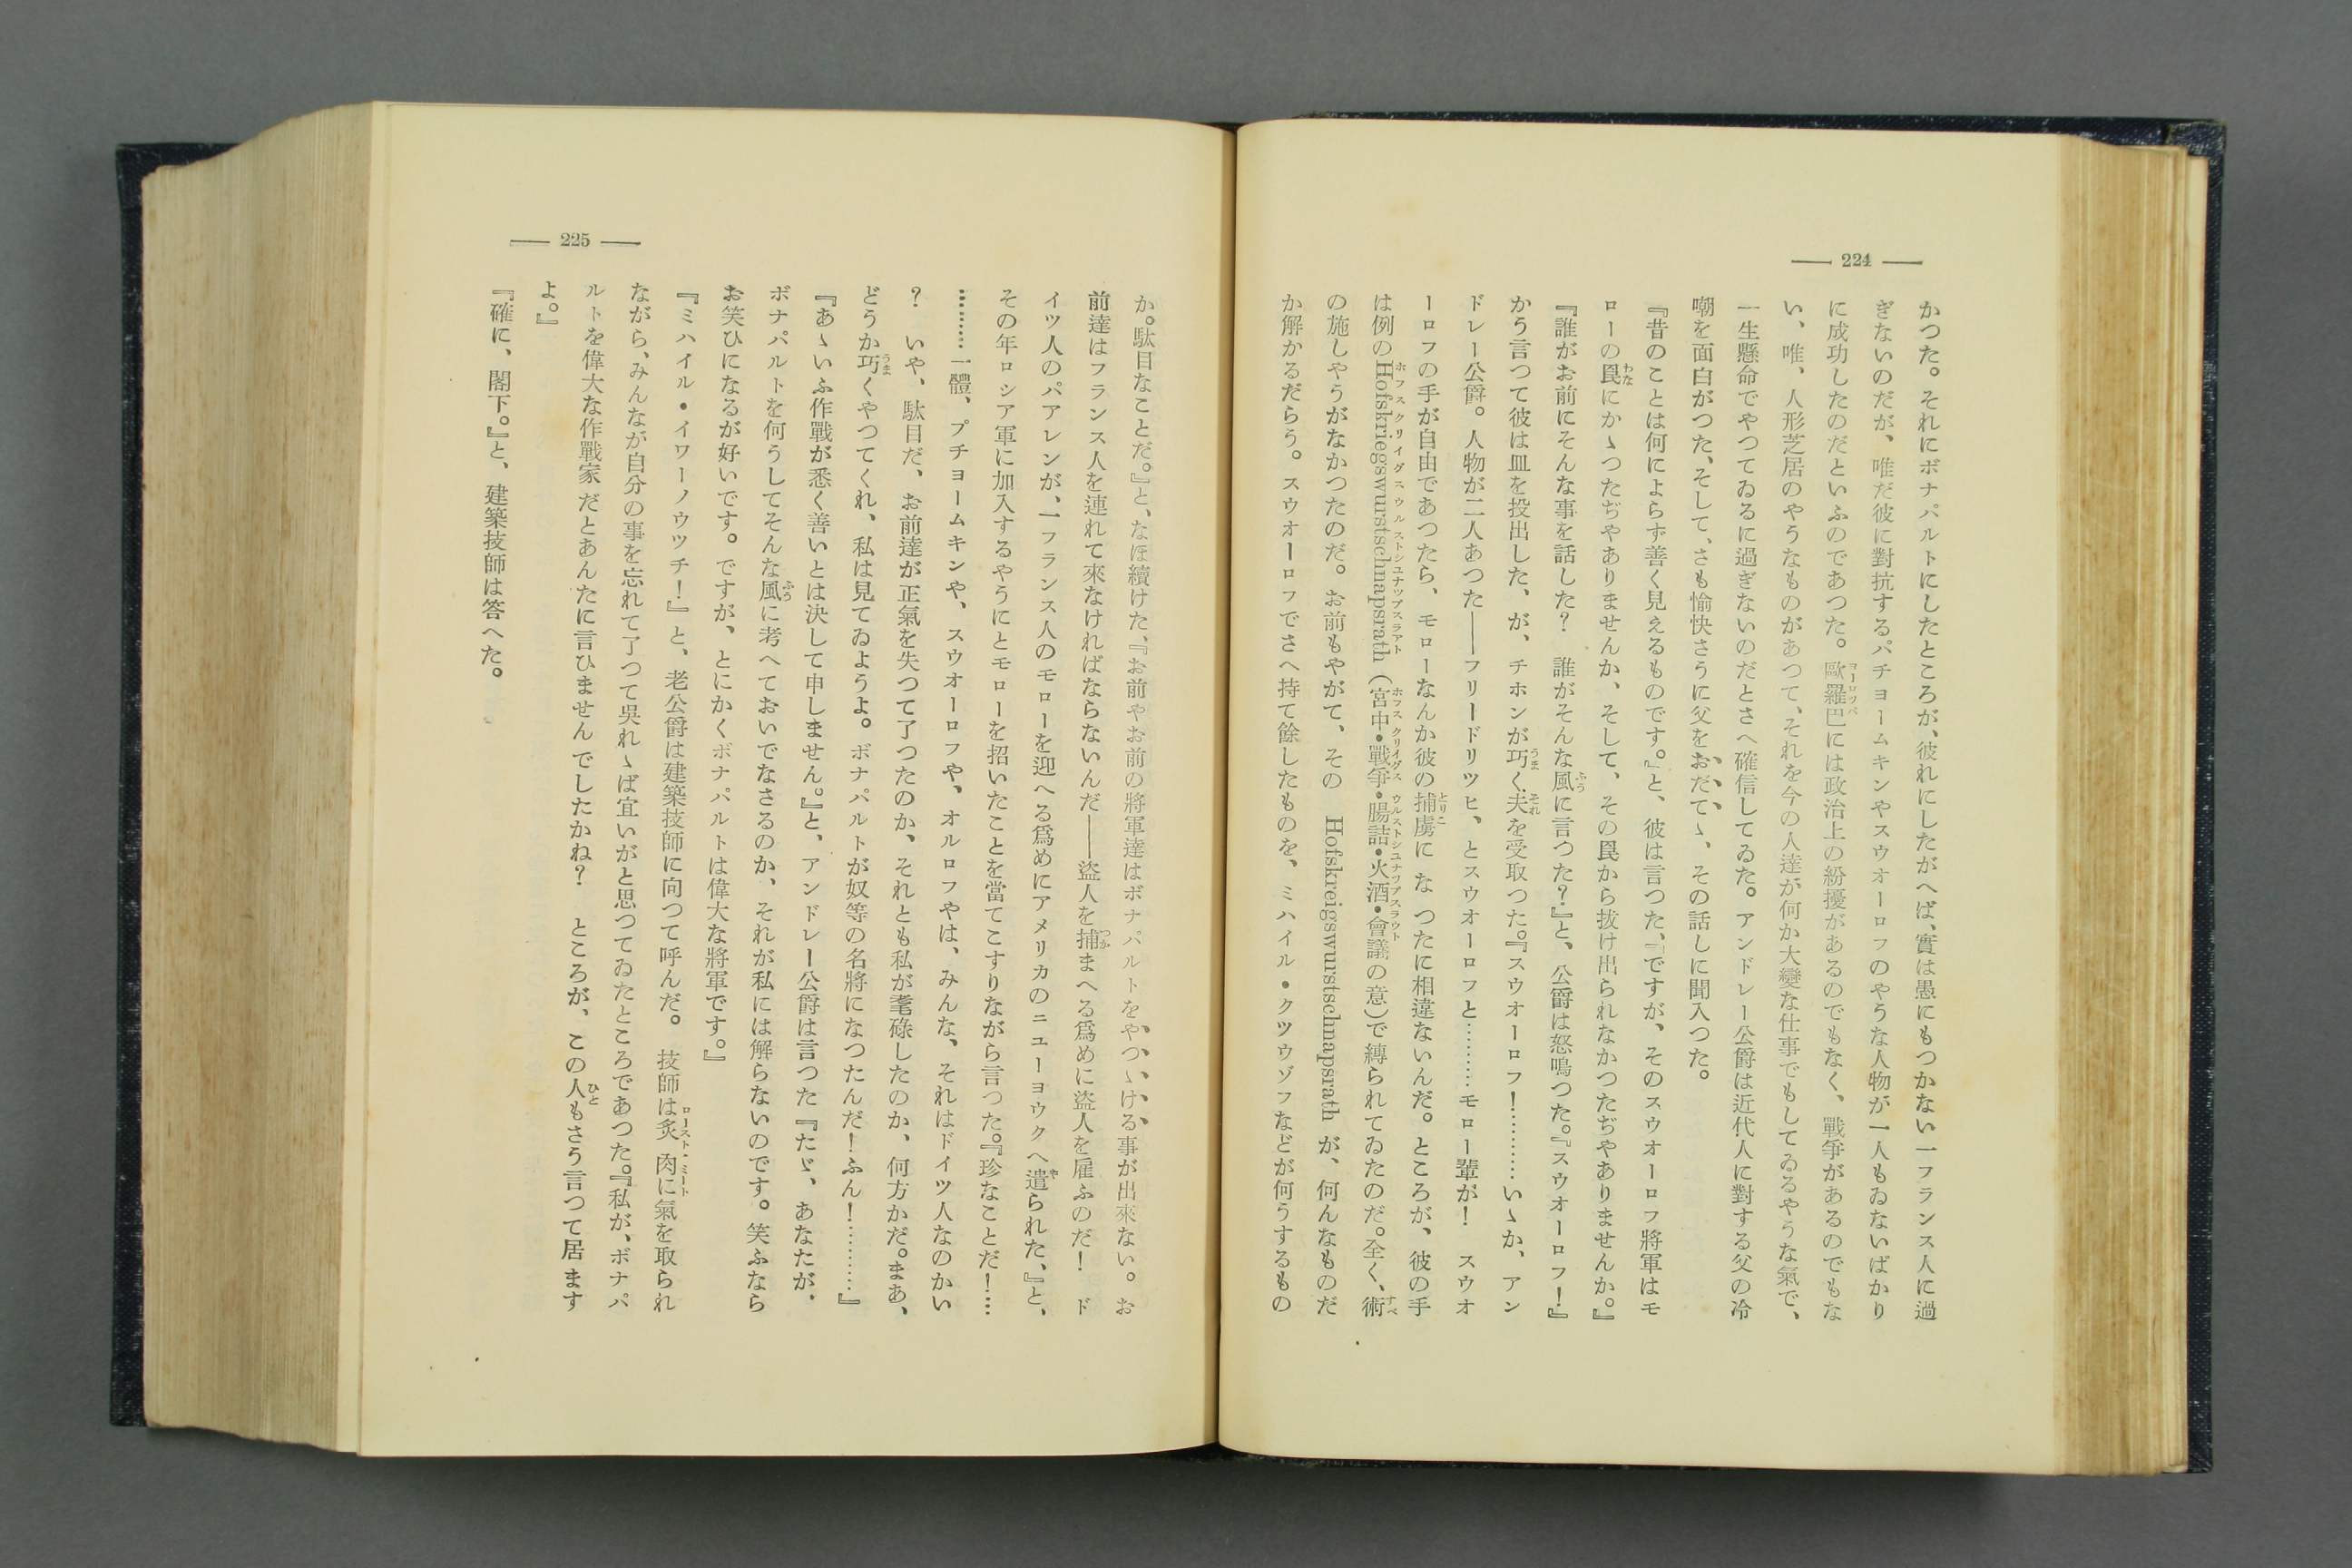 — 224 —
かつた。それにボナパルトにしたところが、彼れにしたがへば、實は愚にもつかない一フランス人に過
ぎないのだが、唯だ彼に對抗するパチヨームキンやスウオーロフのやうな人物が一人もゐないばかり
に成功したのだといふのであつた。歐羅巴には政治上の紛擾があるのでもなく、戰爭があるのでもな
い、唯、人形芝居のやうなものがあつて、それを今の人達が何か大變な仕事でもしてゐるやうな氣で、
一生懸命でやつてゐるに過ぎないのだとさへ確信してゐた。アンドレー公爵は近代人に對する父の冷
嘲を面白がつた、そして、さも愉快さうに父をおだてゝ、その話しに聞入つた。
『昔のことは何によらず善く見えるものです。』と、彼は言つた、『ですが、そのスウオーロフ將軍はモ
ローの罠にかゝつたぢやありませんか、そして、その罠から抜け出られなかつたぢやありませんか。』
『誰がお前にそんな事を話した？　誰がそんな風に言つた？』と、公爵は怒鳴つた。『スウオーロフ！』
かう言つて彼は皿を投出した、が、チホンが巧く夫を受取つた。『スウオーロフ！………いゝか、アン
ドレー公爵。人物が二人あつた——フリードリツヒ、とスウオーロフと………モロー輩が！　スウオ
ーロフの手が自由であつたら、モローなんか彼の捕虜になつたに相違ないんだ。ところが、彼の手
は例のHofskriegswurstschnapsrath（宮中・戰爭・腸詰・火酒・會議の意）で縛られてゐたのだ。全く、術
の施しやうがなかつたのだ。お前もやがて、その Hofskreigswurstschnapsrath が、何んなものだ
か解かるだらう。スウオーロフでさへ持て餘したものを、ミハイル・クツウゾフなどが何うするもの
— 225 —
か。駄目なことだ。』と、なほ續けた、『お前やお前の將軍達はボナパルトをやつゝける事が出來ない。お
前達はフランス人を連れて來なければならないんだ——盜人を捕まへる爲めに盜人を雇ふのだ！　ド
イツ人のパアレンが、一フランス人のモローを迎へる爲めにアメリカのニユーヨウクへ遣られた、』と、
その年ロシア軍に加入するやうにとモローを招いたことを當てこすりながら言つた。『珍なことだ！…
………一體、プチヨームキンや、スウオーロフや、オルロフやは、みんな、それはドイツ人なのかい
？　いや、駄目だ、お前達が正氣を失つて了つたのか、それとも私が耄碌したのか、何方かだ。まあ、
どうか巧くやつてくれ、私は見てゐようよ。ボナパルトが奴等の名將になつたんだ！ふん！………』
『あゝいふ作戰が悉く善いとは決して申しません。』と、アンドレー公爵は言つた『たゞ、あなたが、
ボナパルトを何うしてそんな風に考へておいでなさるのか、それが私には解らないのです。笑ふなら
お笑ひになるが好いです。ですが、とにかくボナパルトは偉大な將軍です。』
『ミハイル・イワーノウツチ！』と、老公爵は建築技師に向つて呼んだ。　技師は炙肉に氣を取られ
ながら、みんなが自分の事を忘れて了つて吳れゝば宜いがと思つてゐたところであつた。『私が、ボナパ
ルトを偉大な作戰家だとあんたに言ひませんでしたかね？　ところが、この人もさう言つて居ます
よ。』
『確に、閣下。』と、建築技師は答へた。